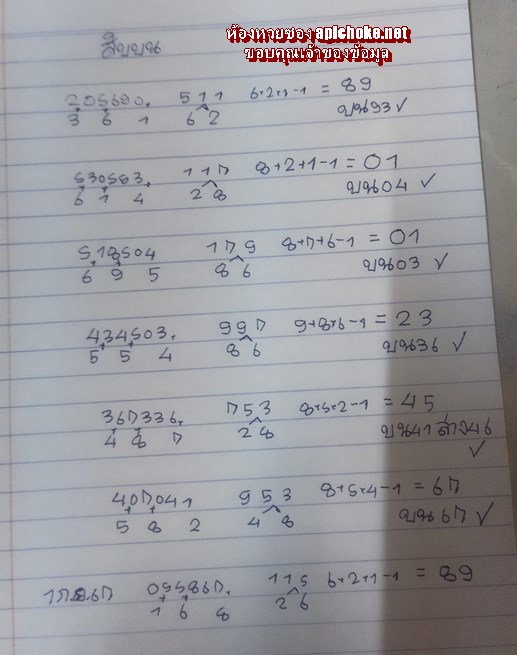 ห้องหวยซอง apichoke.net
ขอบคุณเจ้าของข้อมูล
สิบบน
205690, 511 6+2+1-1 = 89
3 6 1 62 บน93✓
530583, 117 8+2+1-1=01
6 1 4 28 บน04 ✓
518504 179 8+7+6-1 = 01
6 9 5 86 บน03 ✓
434503, 997 9+8+6-1 = 23
5 5 4 86 บน36 ✓
367336, 753 8+5+2-1 = 45
4 8 7 28 บน41 ล่าง46
✓
407041 953 8+5+4-1 = 67
5 8 2 4 8 บน67 ✓
1ก.ย.67 055867, 115 6+2+1-1 = 89
1 6 8 26